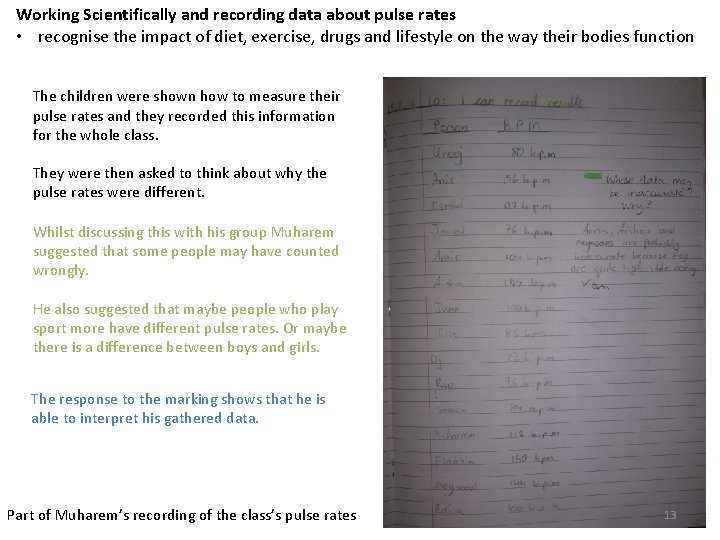 Working Scientifically and recording data about pulse rates
• recognise the impact of diet, exercise, drugs and lifestyle on the way their bodies function
The children were shown how to measure their
pulse rates and they recorded this information
for the whole class.
They were then asked to think about why the
pulse rates were different.
Whilst discussing this with his group Muharem
suggested that some people may have counted
wrongly.
He also suggested that maybe people who play
sport more have different pulse rates. Or maybe
there is a difference between boys and girls.
The response to the marking shows that he is
able to interpret his gathered data.
Part of Muharem’s recording of the class’s pulse rates
LO: I can record results
Person B.P.m.
80 b.p.m
Anis 156 b.p.m
Israd 97 b.p.m
Javed 76 b.p.m
Amir 104 b.p.m
Aisha
100 b.p.m
Elis 85 b.p.m
Dj 72 b.p.m
96 b.p.m
Muharem 112 b.p.m
140 b.p.m
Meysoon 144 b.p.m
Rafia 100 b.p.m
Whose data may
be inaccurate?
Why?
Aniss, Aisha's and
are probably
inaccurate because they
are quite high while resting
13